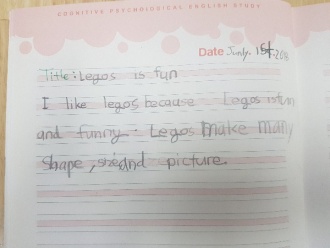 COGNITIVE PSYCHOLOGICAL ENGLISH STUDY
Date
Title: Legos is fun
I like legos because Legos is fun
and funny. Legos make many
shape, and picture.